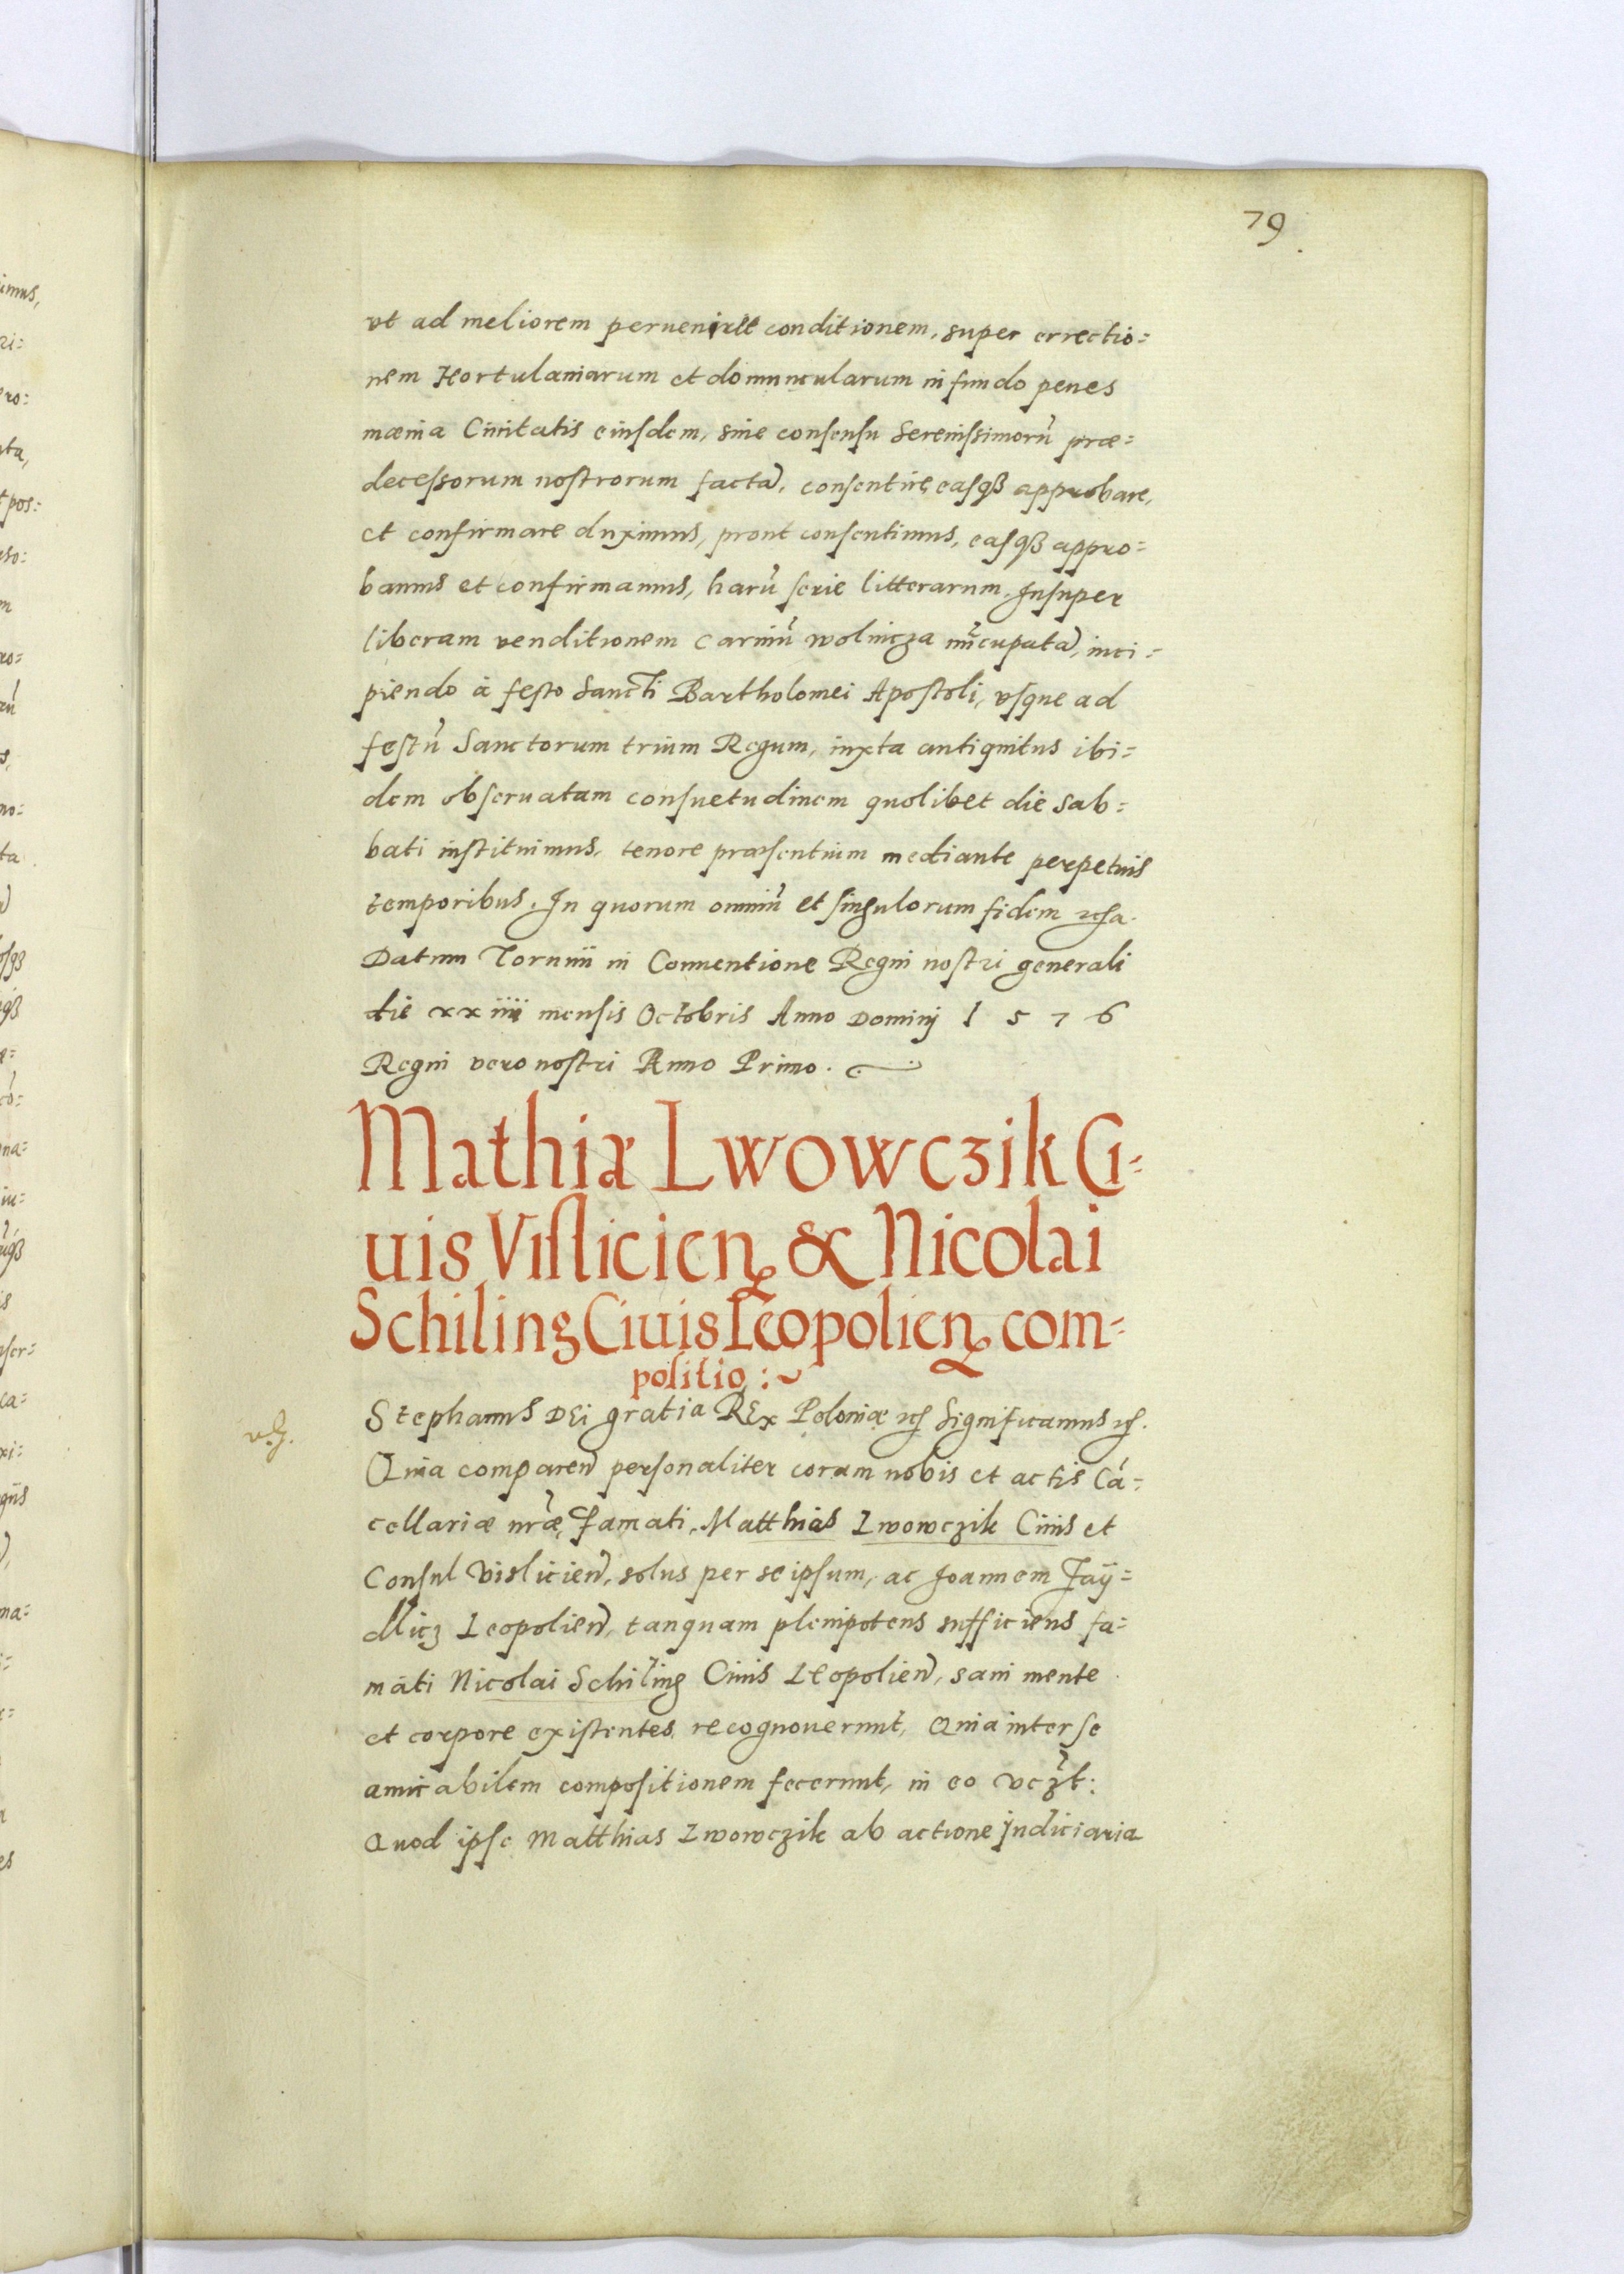 79
vt ad meliorem perueniret conditionem, super errectio=
nem Hortulaniarum et domuncularum in fundo penes
mænia Ciuitatis eiusdem, sine consensu Serenissimorũ præ=
decessorum nostrorum facta), consentire, easqȝ approbare,
et confirmare duximus, prout consentimus, easqȝ appro=
bamus et confirmamus, harũ serie litterarum. Insuper
liberam venditionem carniũ wolnicza nũcupata), inci=
piendo à festo Sancti Bartholomei Apostoli, vsque ad
festũ Sanctorum trium Regum, iuxta antiquitus ibi=
dem obseruatam consuetudinem quolibet die Sab=
bati instituimus, tenore præsentium mediante perpetuis
temporibus. In quorum omniũ et singulorum fidem
Datum Torunij in Conuentione Regni nostri generali
die xxiiii mensis Octobris Anno Domini 1 5 7 6
Regni vero nostri Anno Primo.
Mathiæ Lwowczik Ci=
uis Visliciẽn & Nicolai
Schiling Ciuis Leopolien com=
politio :~
Stephanus DEi gratia REx Poloniæ Significamus
Quia comparen) personaliter coram nobis et actis Cá=
cellariæ nr̃æ, Famati, Matthias Lwowczik Ciuis et
Consul Vislicien), solus per se ipsum, ac Joannem Jaÿ=
dlicz Leopolien), tanquam plenipotens sufficiens fa=
mati Nicolai Schiling Ciuis Leopolien), sani mente
et corpore existentes, recognouerunt, Quia inter se
amicabilem compositionem fecerunt, in eo vcz̃t:
Quod ipse Matthias Lwowczik ab actione Judiciaria